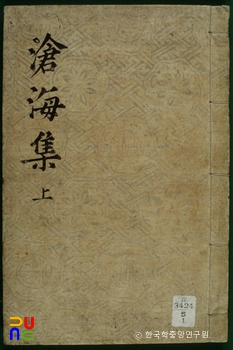 滄海集
上
3424
5
1
한국학중앙연구원